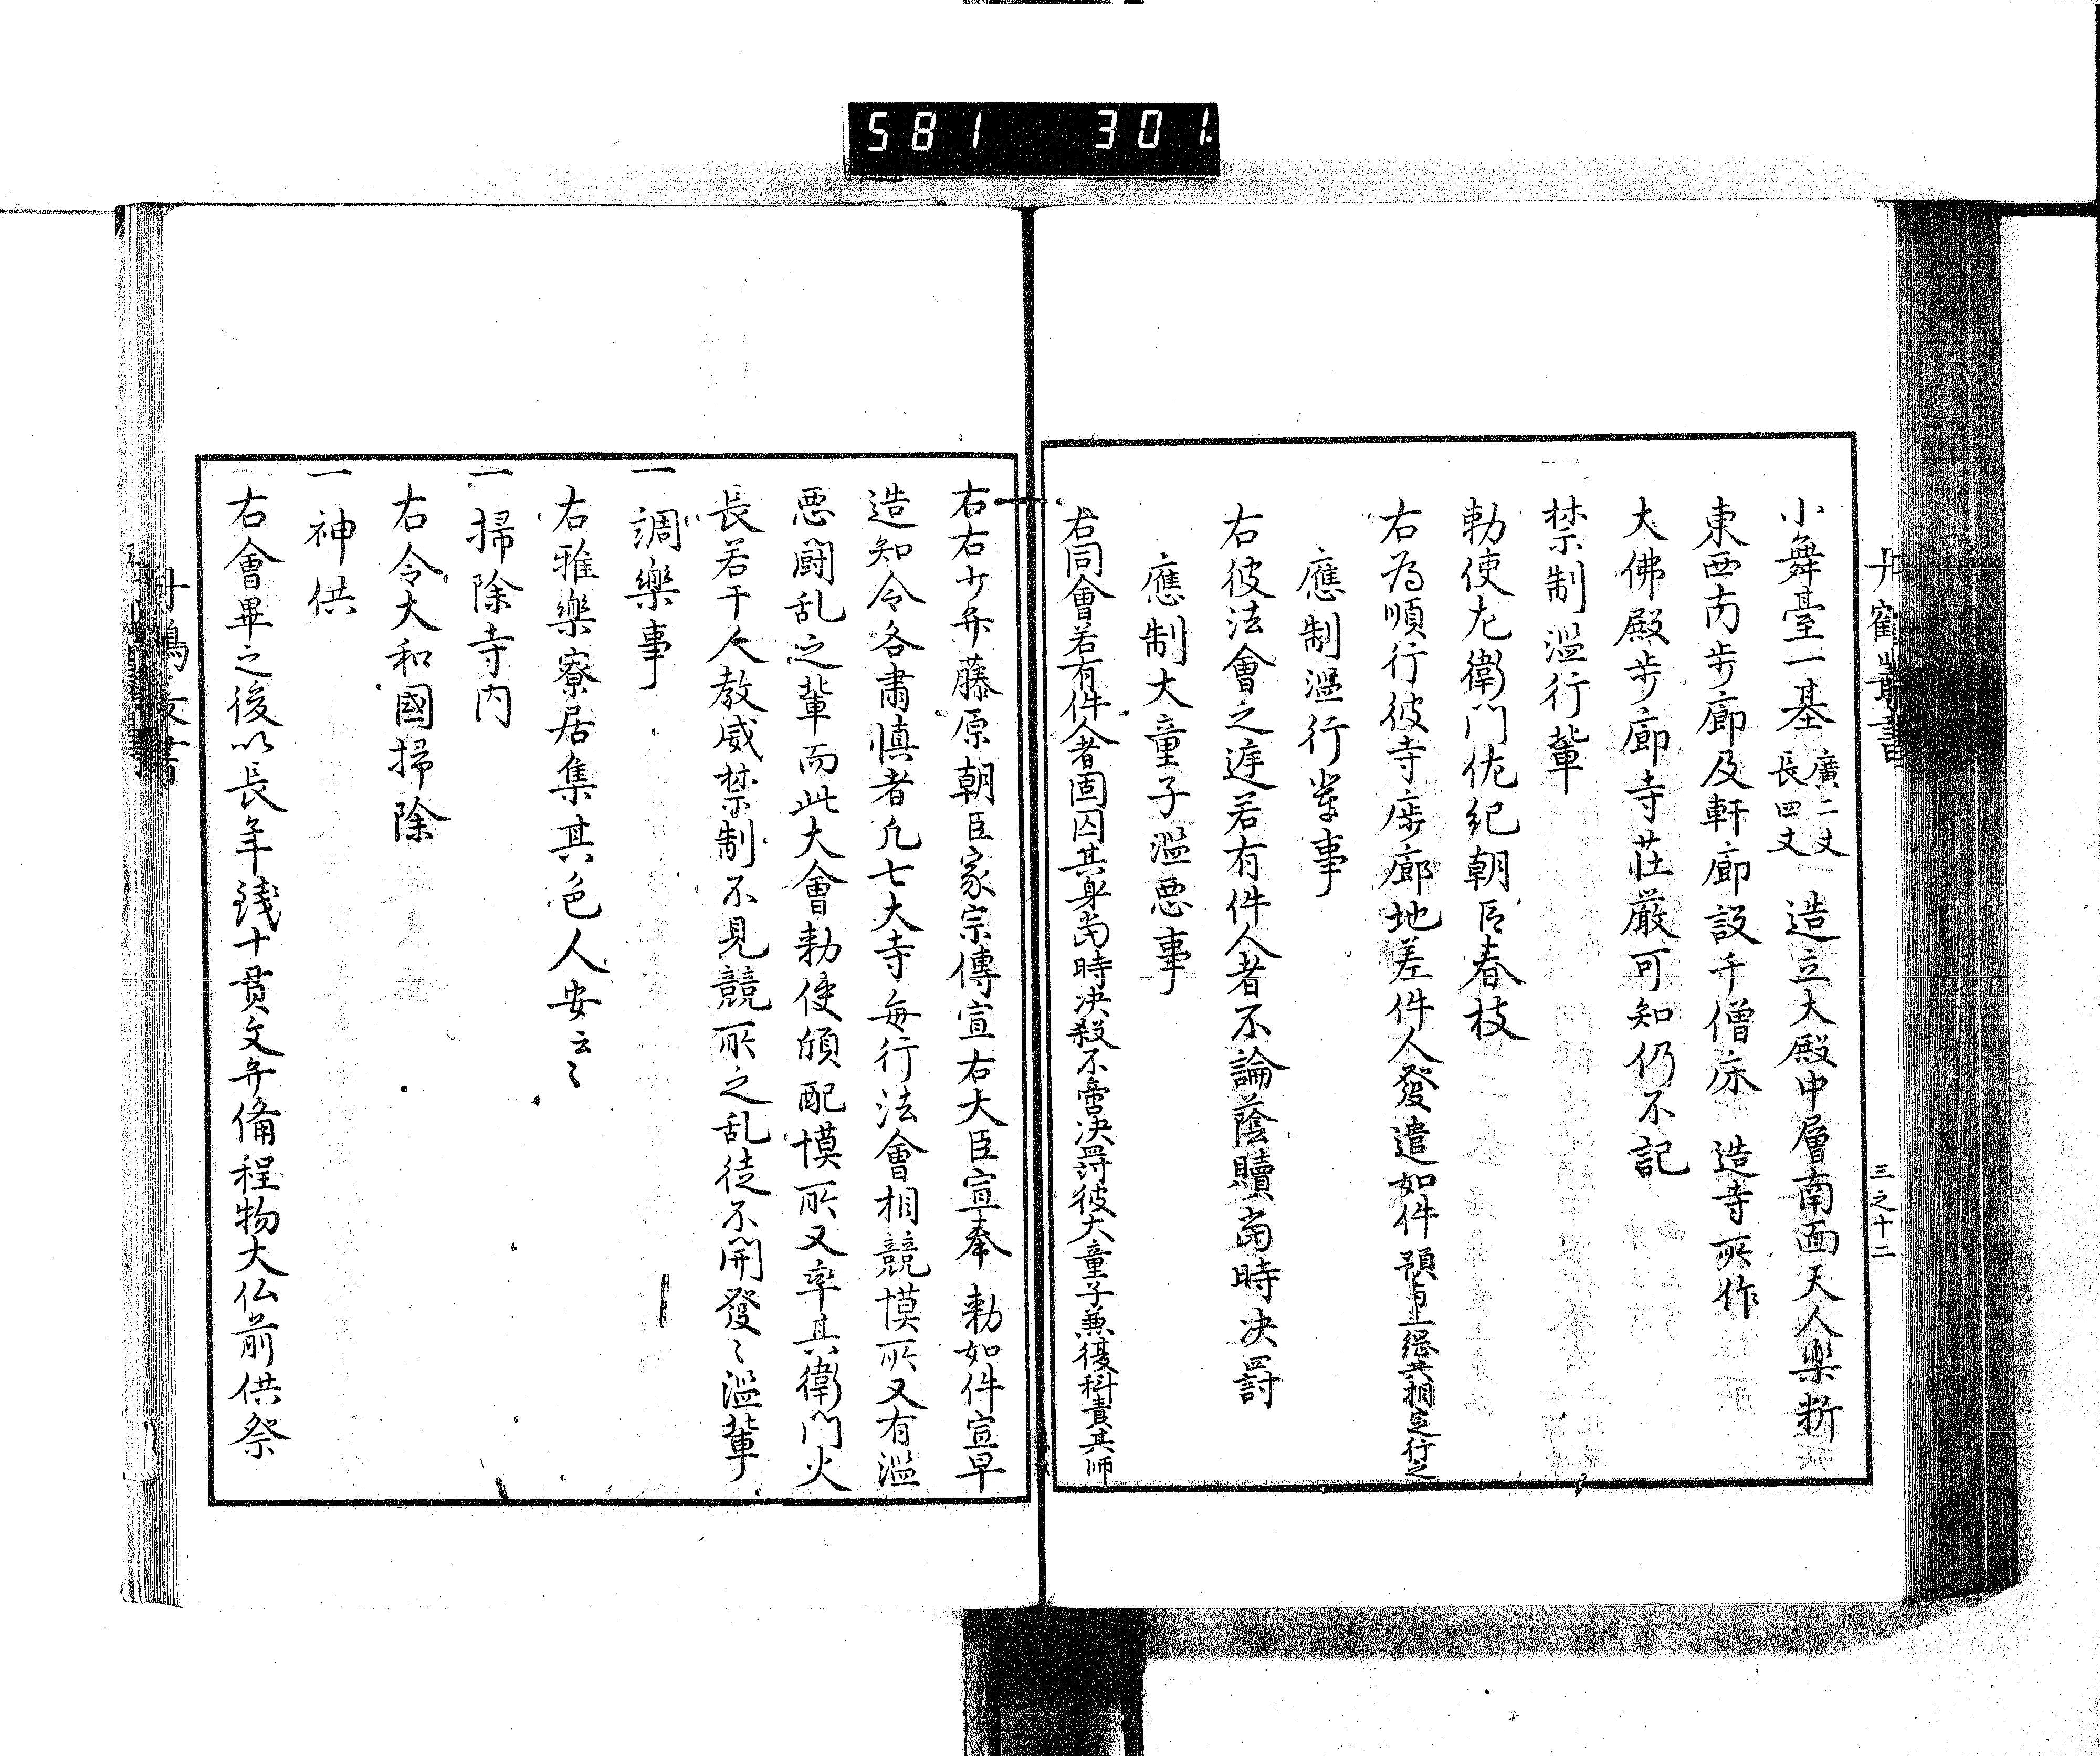 581 301
丹鶴叢書
三之十二
小舞臺一基 廣二丈 長四丈 造立大殿中層南面天人樂断
東西内步廊及軒廊設千僧床 造寺所作
大佛殿步廊寺荘厳可知仍不記
禁制濫行輩
勅使左衛門佐紀朝臣春枝
右為順行彼寺歩廊地差件人發遣如件
應制濫行輩事
右彼法會之遅若有件人者不論蔭贖當時决罸
應制大童子濫悪事
右同會若有件人者固囚其身當時决殺不啻决罸彼大童子兼復科責其师
右右少弁藤原朝臣家宗傳宣右大臣宣奉 勅如件宣早
造知令各肅慎者凡七大寺每行法會相競慔所又有濫
悪鬪乱之輩而此大會勅使頒配慔所又率其衛門火
長若干人教威禁制不見競所之乱徒不開發〻濫輩
一調樂事
右雅樂寮居集其色人安云〻
一掃除寺内
右令大和國掃除
一神供
右會畢之後以長年錢十貫文弁備程物大仏前供祭